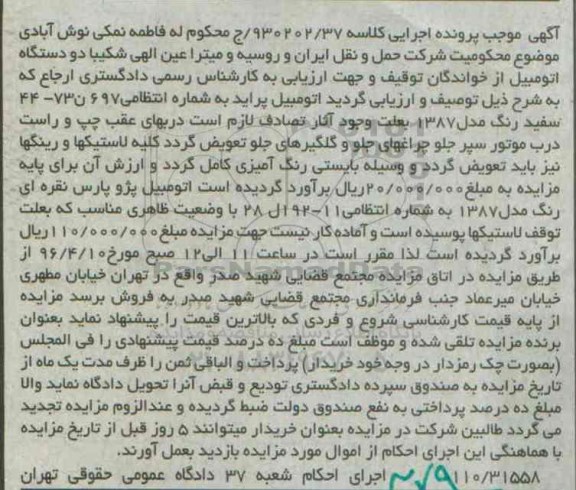 آگهی موجب پرونده اجرایی کلاسه ۹۳۰۲۰۲/۳۷/ج محکوم له فاطمه نمکی نوش آبادی
موضوع محکومیت شرکت حمل و نقل ایران و روسیه و میترا عین الهی شکیبا دو دستگاه
اتومبیل از خواندگان توقیف و جهت ارزیابی به کارشناس رسمی دادگستری ارجاع که
به شرح ذیل توصیف و ارزیابی گردید اتومبیل پراید به شماره انتظامی ۶۹۷ن۷۳-۴۴
سفید رنگ مدل۱۳۸۷ بعلت وجود آثار تصادف لازم است دربهای عقب چپ و راست
درب موتور سپر جلو چراغهای جلو و گلگیرهای جلو تعویض گردد کلیه لاستیکها و رینگها
نیز باید تعویض گردد و وسیله بایستی رنگ آمیزی کامل گردد و ارزش آن برای پایه
مزایده به مبلغ۲۰/۰۰۰/۰۰۰ریال برآورد گردیده است اتومبیل پژو پارس نقره ای
رنگ مدل۱۳۸۷ به شماره انتظامی۱۱-۱۹۲ل ۲۸ با وضعیت ظاهری مناسب که بعلت
توقف لاستیکها پوسیده است و آماده کار نیست جهت مزایده مبلغ۱۱۰/۰۰۰/۰۰۰ریال
برآورد گردیده است لذا مقرر است در ساعت ۱۱ الی۱۲ صبح مورخ۹۶/۴/۱۰ از
طریق مزایده در اتاق مزایده مجتمع قضایی شهید صدر واقع در تهران خیابان مطهری
خیابان میرعماد جنب فرمانداری مجتمع قضایی شهید صدر به فروش برسد مزایده
از پایه قیمت کارشناسی شروع و فردی که بالاترین قیمت را پیشنهاد نماید بعنوان
برنده مزایده تلقی شده و موظف است مبلغ ده درصد قیمت پیشنهادی را فی المجلس
(بصورت چک رمزدار در وجه خود خریدار) پرداخت و الباقی ثمن را ظرف مدت یک ماه از
تاریخ مزایده به صندوق سپرده دادگستری تودیع و قبض آنرا تحویل دادگاه نماید والا
مبلغ ده درصد پرداختی به نفع صندوق دولت ضبط گردیده و عندالزوم مزایده تجدید
می گردد طالبین شرکت در مزایده بعنوان خریدار میتوانند ۵ روز قبل از تاریخ مزایده
با هماهنگی این اجرای احکام از اموال مورد مزایده بازدید بعمل آورند.
۱۱۰/۳۱۵۵۸ اجرای احکام شعبه ۳۷ دادگاه عمومی حقوقی تهران